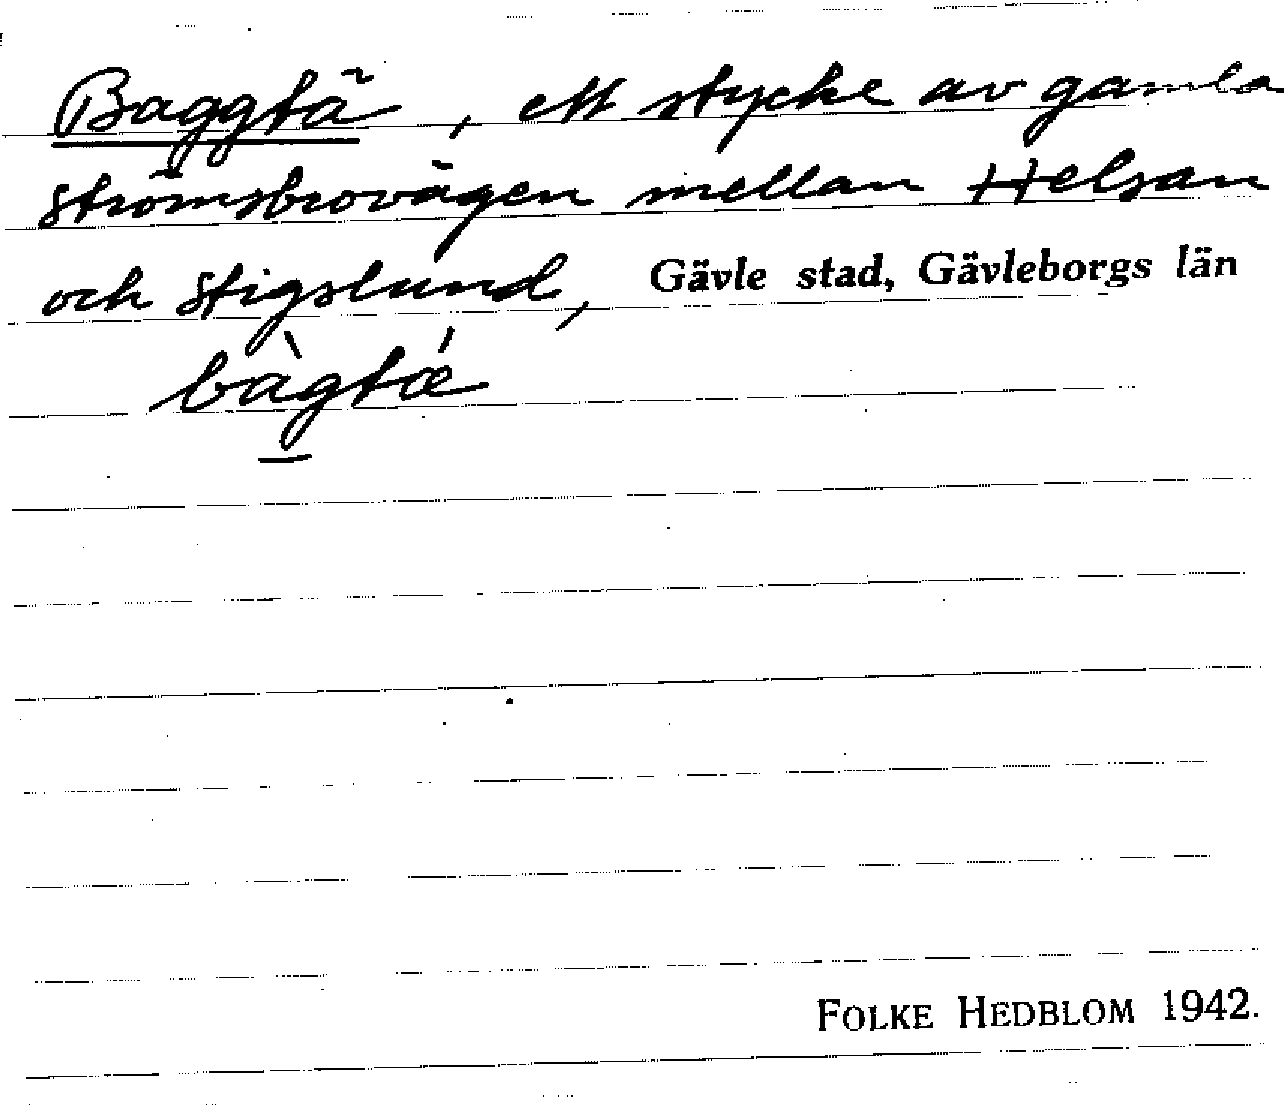 Baggtä, ett stycke av gamla
strömsbrovägen mellan Helsan
och Stigslund, Gävle stad, Gävleborgs län
bàgtǽ
FOLKE HEDBLOM 1942.